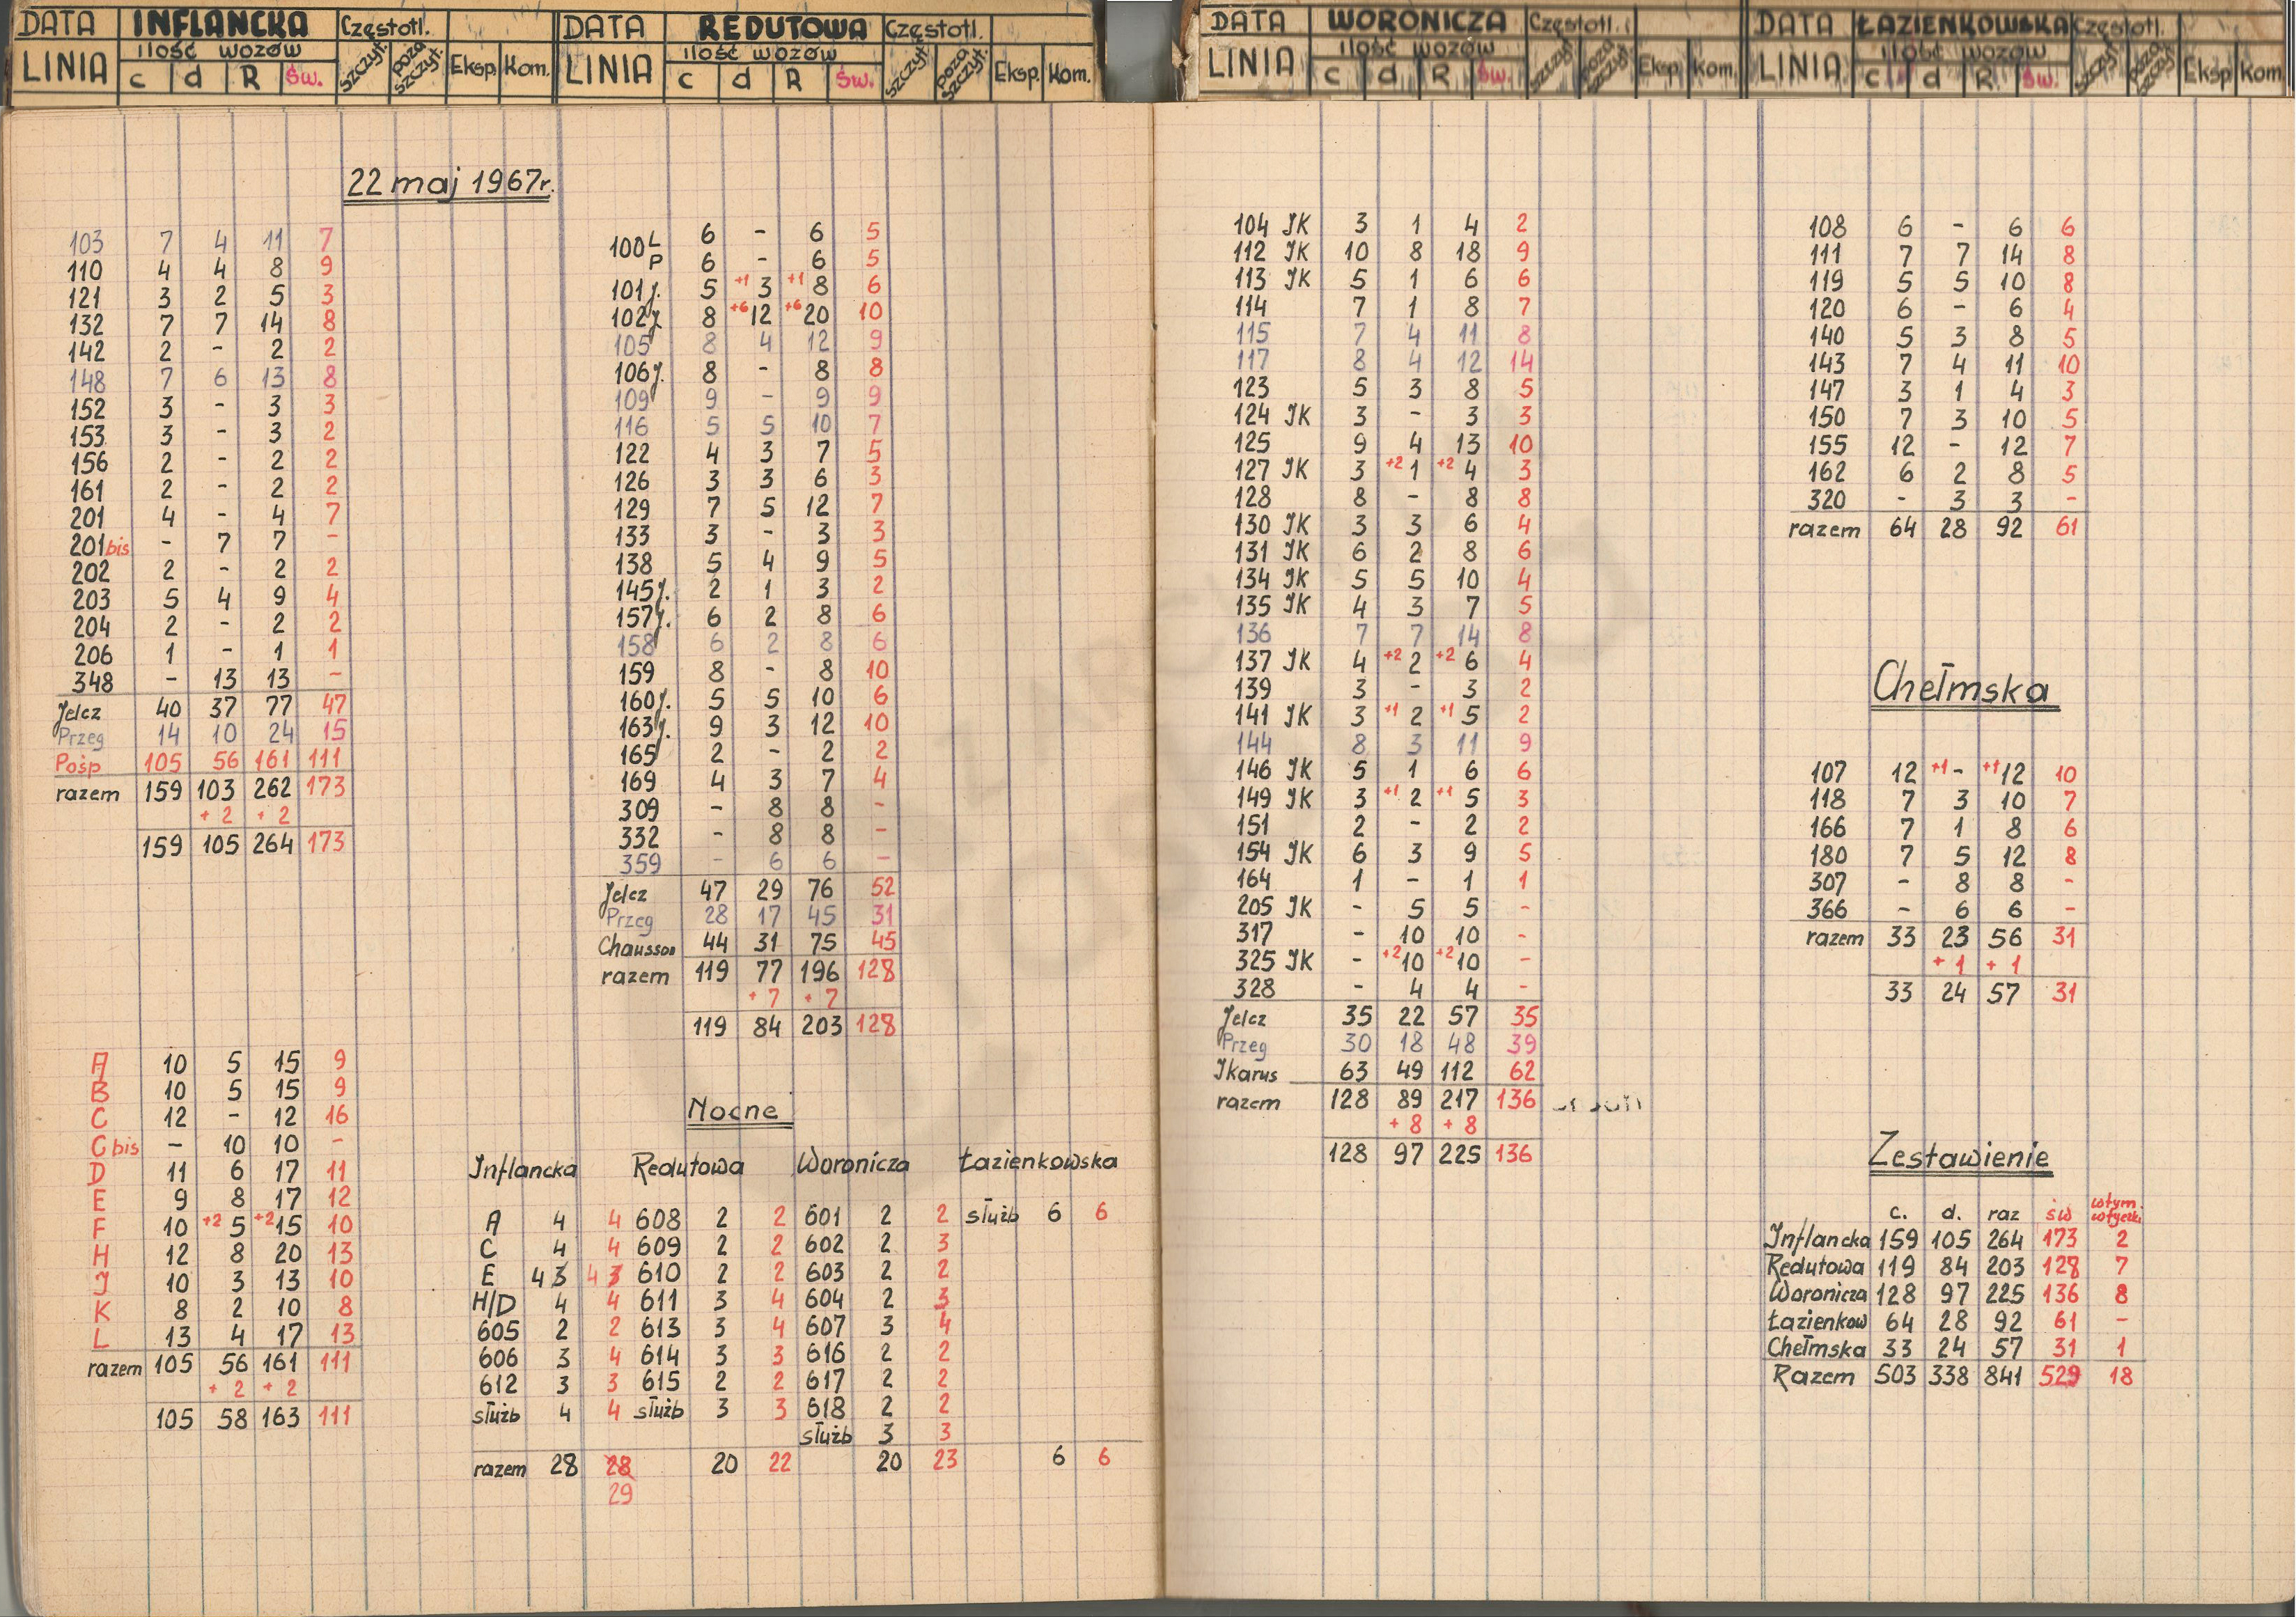 DATA INFLANCKA Częstotl.
LINIA ilość wozów szczyt. poza szczyt. Eksp. Kom.
c d R Św.
22 maj 1967r.
103 7 4 11 7
110 4 4 8 9
121 3 2 5 3
132 7 7 14 8
142 2 - 2 2
148 7 6 13 8
152 3 - 3 3
153 3 - 3 2
156 2 - 2 2
161 2 - 2 2
201 4 - 4 7
201 bis - 7 7 -
202 2 - 2 2
203 5 4 9 4
204 2 - 2 2
206 1 - 1 1
348 - 13 13 -
Jelcz 40 37 77 47
Przeg 14 10 24 15
Pośp 105 56 161 111
razem 159 103 262 173
+2 +2
159 105 264 173
A 10 5 15 9
B 10 5 15 9
C 12 - 12 16
C bis - 10 10 -
D 11 6 17 11
E 9 8 17 12
F 10 +2 5 +2 15 10
H 12 8 20 13
J 10 3 13 10
K 8 2 10 8
L 13 4 17 13
razem 105 56 161 111
+2 +2
105 58 163 111
DATA REDUTOWA Częstotl.
LINIA ilość wozów szczyt. poza szczyt. Eksp. Kom.
c d R Św.
100 L 6 - 6 5
P 6 - 6 5
101 j. 5 +1 3 +1 8 6
102 j 8 +6 12 +6 20 10
105 8 4 12 9
106 j. 8 - 8 8
109 9 - 9 9
116 5 5 10 7
122 4 3 7 5
126 3 3 6 3
129 7 5 12 7
133 3 - 3 3
138 5 4 9 5
145 j. 2 1 3 2
157 j. 6 2 8 6
158 6 2 8 6
159 8 - 8 10
160 j. 5 5 10 6
163 j. 9 3 12 10
165 2 - 2 2
169 4 3 7 4
309 - 8 8 -
332 - 8 8 -
359 - 6 6 -
Jelcz 47 29 76 52
Przeg 28 17 45 31
Chausson 44 31 75 45
razem 119 77 196 128
+7 +7
119 84 203 128
Nocne
Inflancka Redutowa Woronicza Łazienkowska
A 4 4 608 2 2 601 2 2 służb 6 6
C 4 4 609 2 2 602 2 3
E 4 3 4 3 610 2 2 603 2 2
H/D 4 4 611 3 4 604 2 3
605 2 2 613 3 4 607 3 4
606 3 4 614 3 3 616 2 2
612 3 3 615 2 2 617 2 2
służb 4 4 służb 3 3 618 2 2
służb 3 3
razem 28 28 20 22 20 23 6 6
29
DATA WORONICZA Częstotl.
LINIA ilość wozów szczyt. poza szczyt. Eksp. Kom.
c d R Św.
104 JK 3 1 4 2
112 JK 10 8 18 9
113 JK 5 1 6 6
114 7 1 8 7
115 7 4 11 8
117 8 4 12 14
123 5 3 8 5
124 JK 3 - 3 3
125 9 4 13 10
127 JK 3 +2 1 +2 4 3
128 8 - 8 8
130 JK 3 3 6 4
131 JK 6 2 8 6
134 JK 5 5 10 4
135 JK 4 3 7 5
136 7 7 14 8
137 JK 4 +2 2 +2 6 4
139 3 - 3 2
141 JK 3 +1 2 +1 5 2
144 8 3 11 9
146 JK 5 1 6 6
149 JK 3 +1 2 +1 5 3
151 2 - 2 2
154 JK 6 3 9 5
164 1 - 1 1
205 JK - 5 5 -
317 - 10 10 -
325 JK - +2 10 +2 10 -
328 - 4 4 -
Jelcz 35 22 57 35
Przeg 30 18 48 39
Jkarus 63 49 112 62
razem 128 89 217 136
+8 +8
128 97 225 136
DATA ŁAZIENKOWSKA Częstotl.
LINIA ilość wozów szczyt. poza szczyt. Eksp Kom.
c d R Św.
108 6 - 6 6
111 7 7 14 8
119 5 5 10 8
120 6 - 6 4
140 5 3 8 5
143 7 4 11 10
147 3 1 4 3
150 7 3 10 5
155 12 - 12 7
162 6 2 8 5
320 - 3 3 -
razem 64 28 92 61
Chełmska
107 12 +1 - +1 12 10
118 7 3 10 7
166 7 1 8 6
180 7 5 12 8
307 - 8 8 -
366 - 6 6 -
razem 33 23 56 31
+1 +1
33 24 57 31
Zestawienie
c. d. raz św wtym wtyczki
Inflancka 159 105 264 173 2
Redutowa 119 84 203 128 7
Woronicza 128 97 225 136 8
Łazienkow 64 28 92 61 -
Chełmska 33 24 57 31 1
Razem 503 338 841 529 18